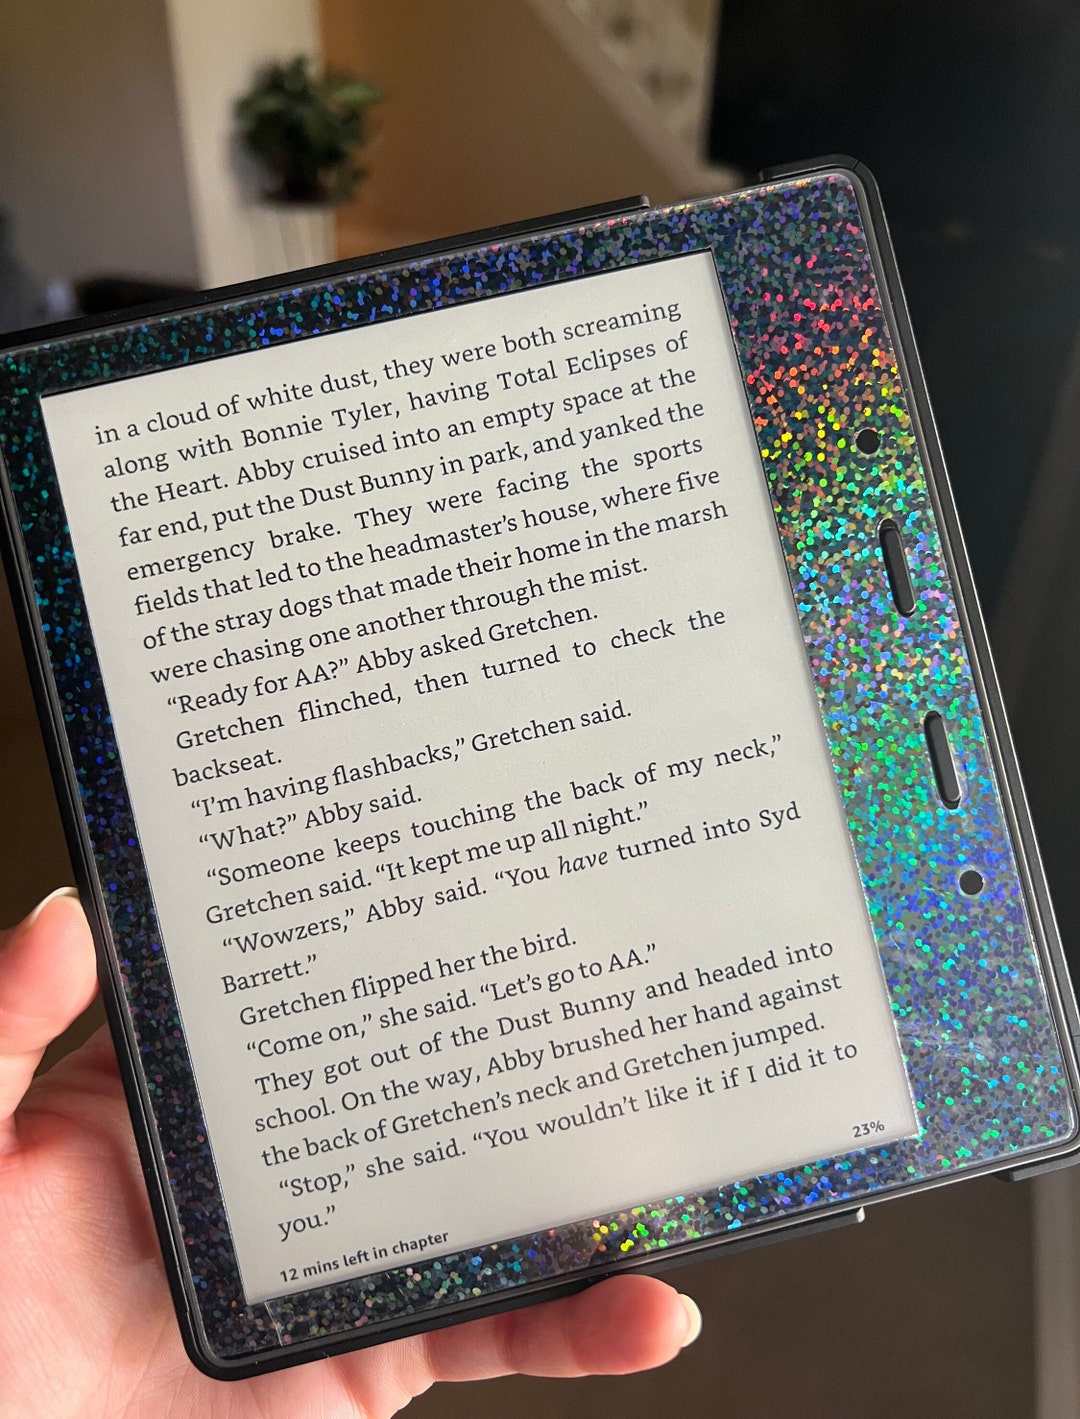 in a cloud of white dust, they were both screaming
along with Bonnie Tyler, having Total Eclipses of
the Heart. Abby cruised into an empty space at the
far end, put the Dust Bunny in park, and yanked the
emergency brake. They were facing the sports
fields that led to the headmaster’s house, where five
of the stray dogs that made their home in the marsh
were chasing one another through the mist.
“Ready for AA?” Abby asked Gretchen.
Gretchen flinched, then turned to check the
backseat.
“I’m having flashbacks,” Gretchen said.
“What?” Abby said.
“Someone keeps touching the back of my neck,”
Gretchen said. “It kept me up all night.”
“Wowzers,” Abby said. “You have turned into Syd
Barrett.”
Gretchen flipped her the bird.
“Come on,” she said. “Let’s go to AA.”
They got out of the Dust Bunny and headed into
school. On the way, Abby brushed her hand against
the back of Gretchen’s neck and Gretchen jumped.
“Stop,” she said. “You wouldn’t like it if I did it to
you.”
12 mins left in chapter
23%